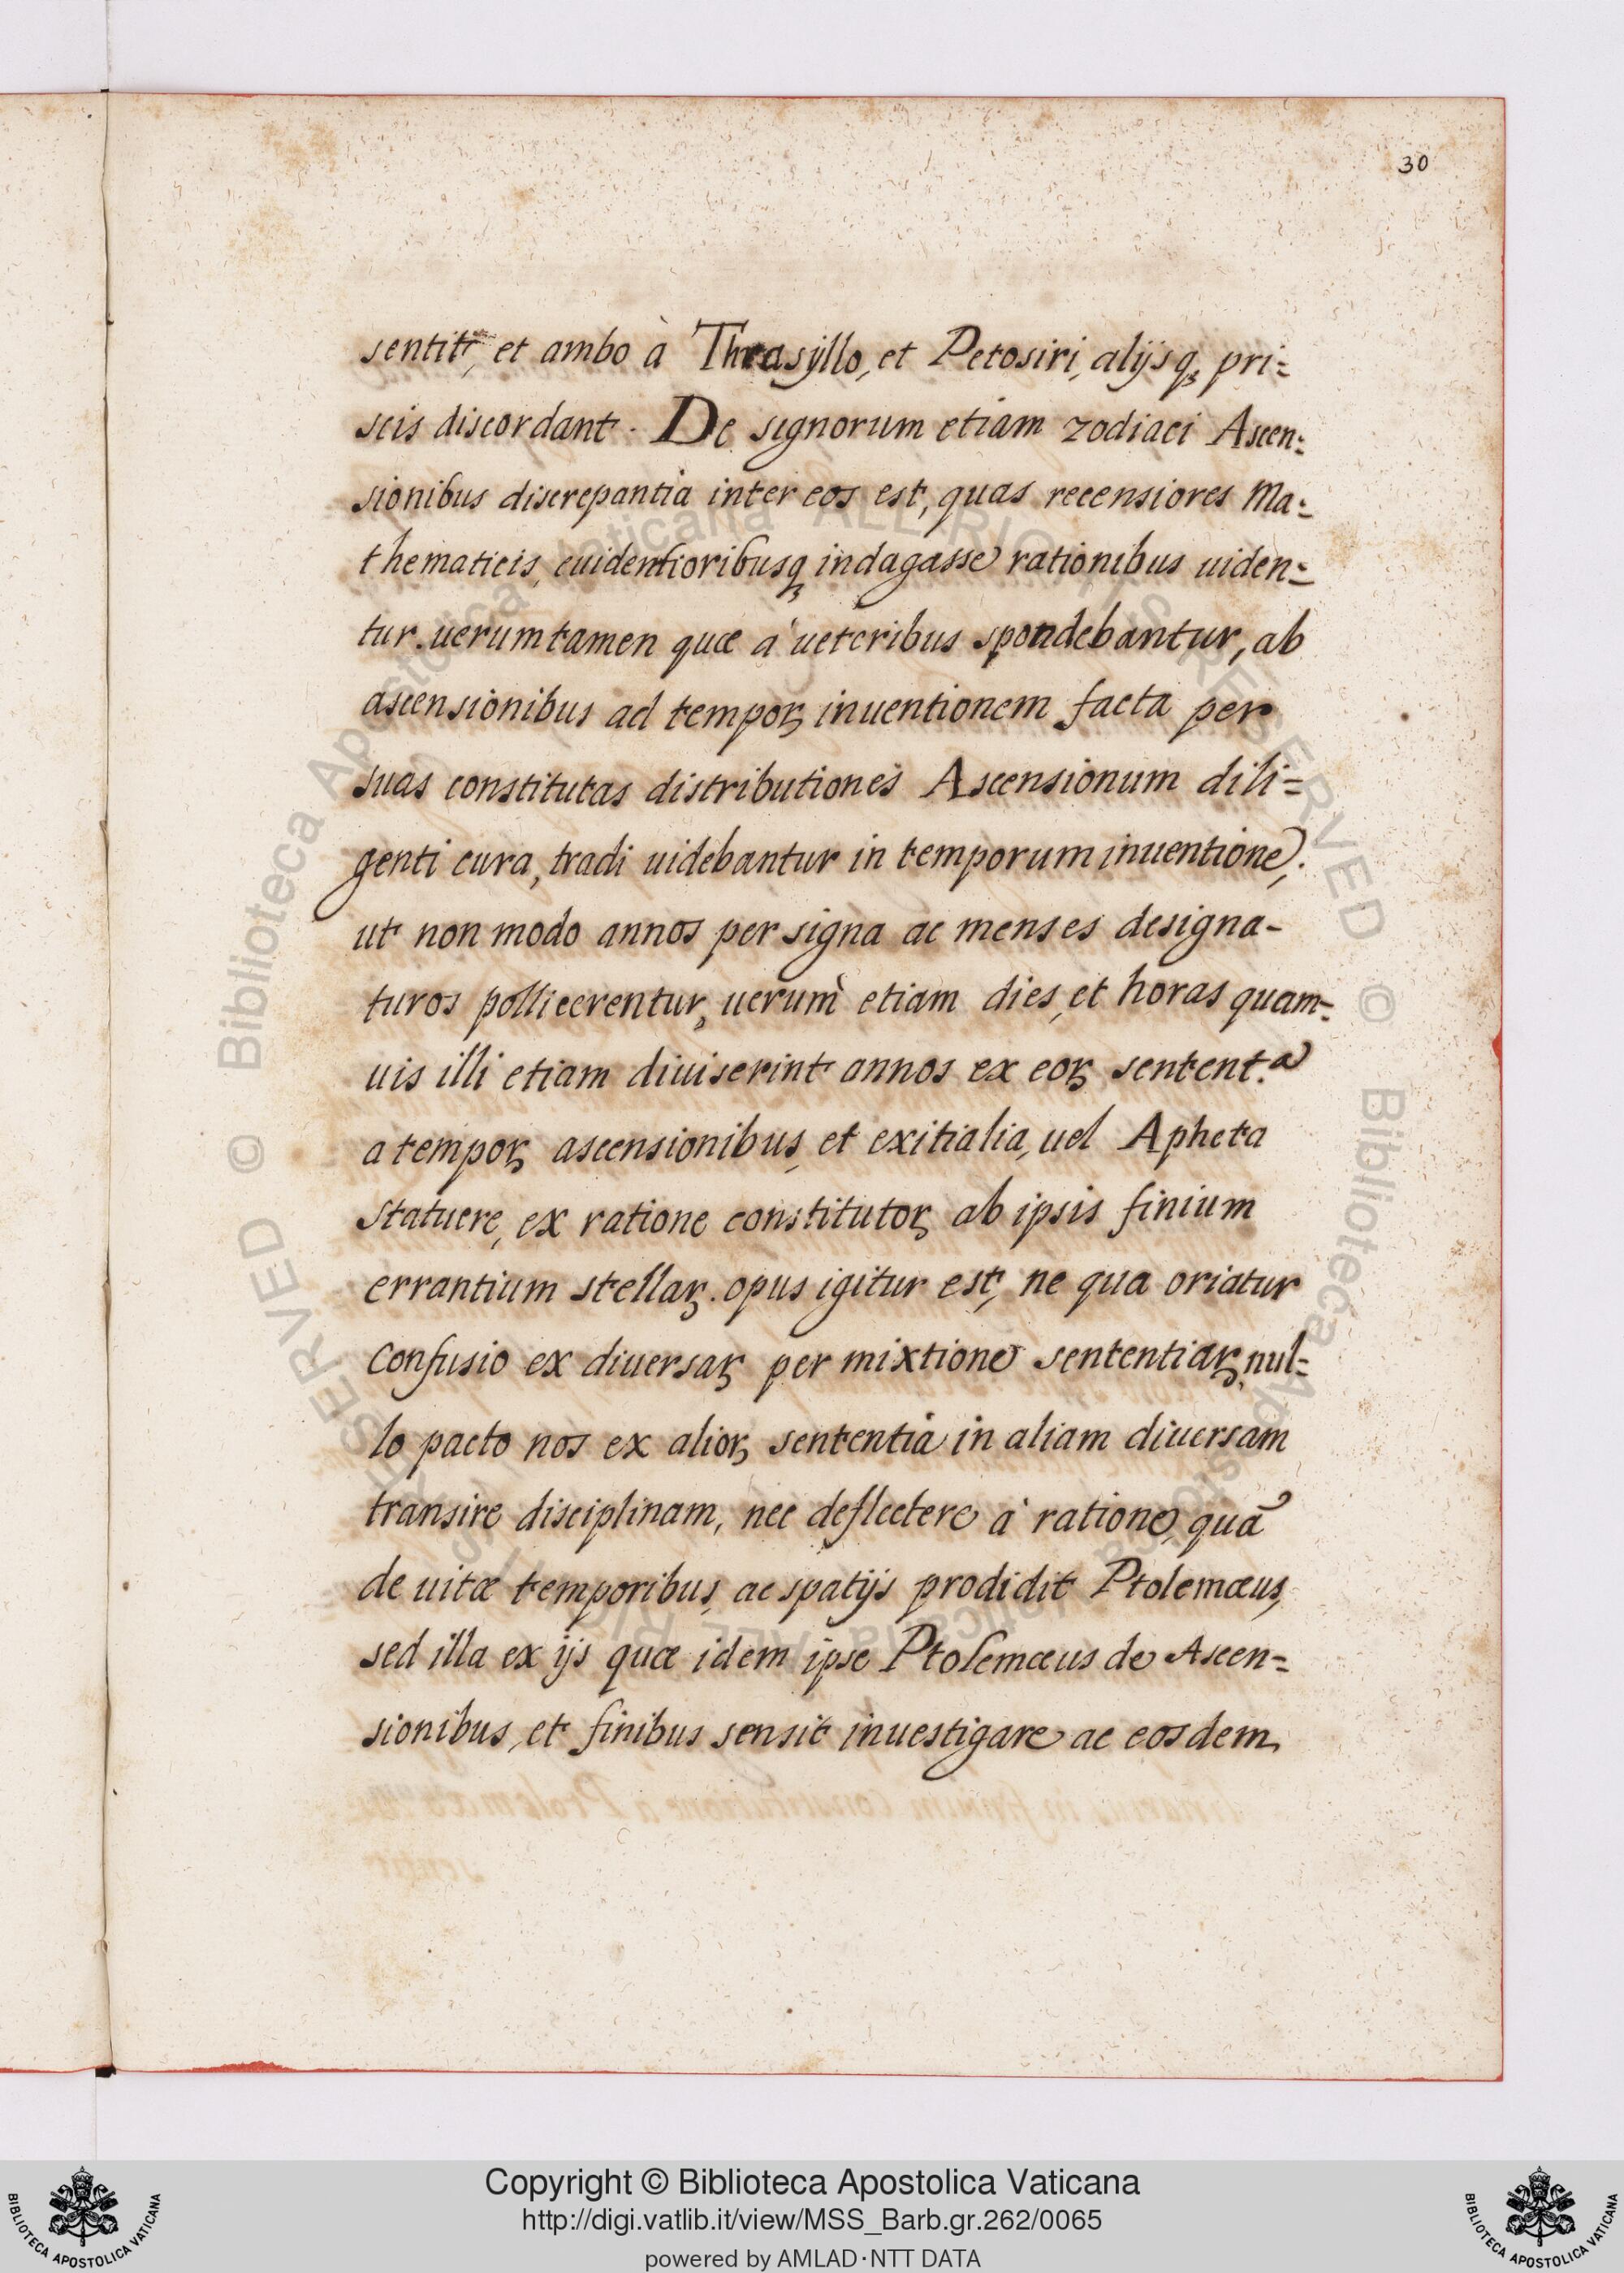 30
sentit, et ambo à Thrasyllo, et Petosiri, alijsq; pri=
scis discordant. De signorum etiam zodiaci Ascen=
sionibus discrepantia inter eos est, quas recensiores Ma=
thematicis, euidentioribusq; indagasse rationibus uiden=
tur. uerumtamen quæ à ueteribus spondebantur, ab
ascensionibus ad temporꝝ inuentionem facta per
suas constitutas distributiones Ascensionum dili=
genti cura, tradi uidebantur in temporum inuentione;
ut non modo annos per signa ac menses designa-
turos pollicerentur, uerum etiam dies, et horas quam=
uis illi etiam diuiserint annos ex eorꝝ sentent.a
a temporꝝ ascensionibus, et exitialia, uel Apheta
statuere, ex ratione constitutorꝝ ab ipsis finium
errantium stellarꝝ. opus igitur est, ne qua oriatur
confusio ex diuersarꝝ per mixtione sententiarꝝ, nul=
lo pacto nos ex aliorꝝ sententia in aliam diuersam
transire disciplinam, nec deflectere à ratione, quã
de uitæ temporibus, ac spatijs prodidit Ptolemæus,
sed illa ex ijs quæ idem ipse Ptolemæus de Ascen=
sionibus, et finibus sensit inuestigare ac eosdem
Copyright © Biblioteca Apostolica Vaticana
http://digi.vatlib.it/view/MSS_Barb.gr.262/0065
powered by AMLAD·NTT DATA
BIBLIOTECA APOSTOLICA VATICANA
BIBLIOTECA APOSTOLICA VATICANA